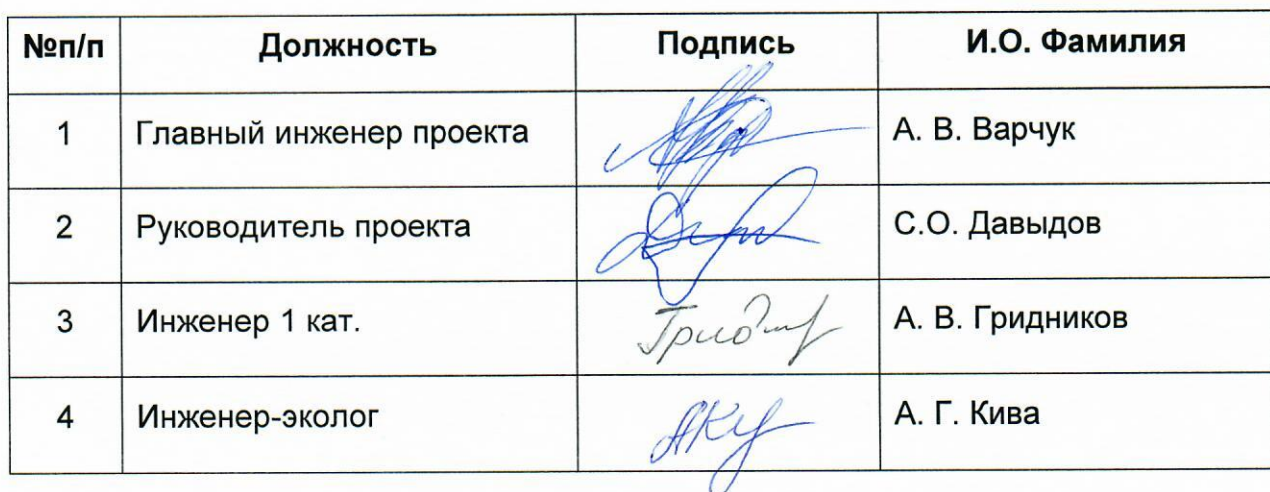 №п/п Должность Подпись И.О. Фамилия
1 Главный инженер проекта А. В. Варчук
2 Руководитель проекта С.О. Давыдов
3 Инженер 1 кат. А. В. Гридников
4 Инженер-эколог А. Г. Кива